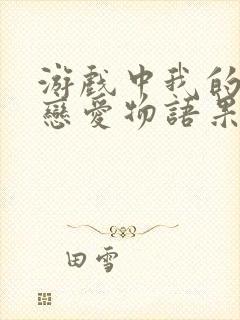 游戲中我的
戀愛物語果
田雪